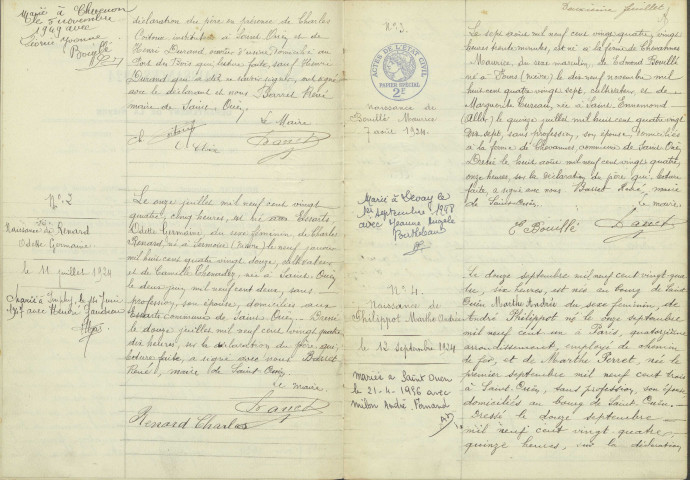 Mariée à Chevenon
le 5 novembre
1949 avec
Yvonne
Bouillé
déclaration du père en présence de Charles
instituteur à Saint-Ouën et de
Henri Durand
Port des Bois qui, lecture faite, sauf Henri
Durand qui a dit ne savoir signer, ont signé
avec le déclarant et nous Barret René
maire de Saint-Ouën.
Le Maire
Barret
N° 2
Naissance de Renard
Odette Germaine
le 11 juillet 1924
Mariée à Imphy le
1947 avec Henri
Le onze juillet mil neuf cent vingt
quatre, cinq heures, est née aux Essarts
Odette Germaine, du sexe féminin de Charles
Renard, né à
mil huit cent quatre vingt douze, cultivateur
et de Camille née à Saint-Ouën
le deux juin mil neuf cent deux, sans
profession, son épouse, domiciliés aux
Essarts commune de Saint-Ouën. Dressé
le douze juillet mil neuf cent vingt quatre
dix heures, sur la déclaration du père qui,
lecture faite, a signé avec nous Barret
René, maire de Saint-Ouën.
Le maire,
Barret
Renard Charles
Deuxième feuillet
N° 3.
ACTES DE L'ÉTAT CIVIL
PAPIER SPÉCIAL
2F
Naissance de
Bouillé Maurice
7 août 1924.
Marié à Devay le
1er septembre 1948
avec Jeanne Angèle
Le sept août mil neuf cent vingt quatre, vingt
heures trente minutes, est né à la ferme de Chevannes
Maurice, du sexe masculin, de Edmond Bouillé
né à (Nièvre) le dix neuf novembre mil
huit cent quatre vingt sept, cultivateur, et de
Marguerite née à Saint-Ennemond
(Allier) le quinze juillet mil huit cent quatre vingt
dix sept, sans profession, son épouse, domiciliés
à la ferme de Chevannes, commune de Saint-Ouën.
Dressé le huit août mil neuf cent vingt quatre,
onze heures, sur la déclaration du père qui, lecture
faite, a signé avec nous Barret André, maire
de Saint-Ouën.
Le maire
E Bouillé
Barret
N° 4.
Naissance de
Philippot Marthe Andrée
le 12 Septembre 1924
mariée à Saint Ouen
le 21-4-1946 avec
milon André Fernand
Le douze septembre mil neuf cent vingt qua-
tre, six heures, est née au bourg de Saint
Ouën Marthe Andrée du sexe féminin, de
André Philippot né le onze septembre
mil neuf cent un à Paris, quatorzième
arrondissement, employé de chemin
de fer, et de Marthe Perret, née le
premier septembre mil neuf cent trois
à Saint-Ouën, sans profession, son épouse
domiciliés au bourg de Saint-Ouën.
Dressé le douze septembre
mil neuf cent vingt quatre,
quinze heures, sur la déclaration